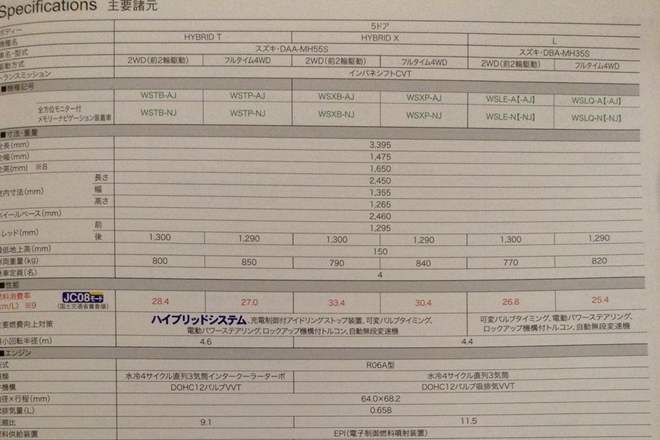 Specifications 主要諸元
ボディー 5ドア
機種名 HYBRID T HYBRID X L
車名・型式 スズキ・DAA-MH55S スズキ・DBA-MH35S
駆動方式 2WD(前2輪駆動) フルタイム4WD 2WD(前2輪駆動) フルタイム4WD 2WD(前2輪駆動) フルタイム4WD
トランスミッション インパネシフトCVT
■機種記号
WSTB-AJ WSTP-AJ WSXB-AJ WSXP-AJ WSLE-A【-AJ】 WSLQ-A【-AJ】
全方位モニター付メモリーナビゲーション装着車 WSTB-NJ WSTP-NJ WSXB-NJ WSXP-NJ WSLE-N【-NJ】 WSLQ-N【-NJ】
■寸法・重量
全長(mm) 3,395
全幅(mm) 1,475
全高(mm) ※8 1,650
室内寸法(mm) 長さ 2,450
幅 1,355
高さ 1,265
ホイールベース(mm) 2,460
トレッド(mm) 前 1,295
後 1,300 1,290 1,300 1,290 1,300 1,290
最低地上高(mm) 150
車両重量(kg) 800 850 790 840 770 820
乗車定員(名) 4
■性能
燃料消費率(km/L) ※9 JC08モード (国土交通省審査値) 28.4 27.0 33.4 30.4 26.8 25.4
主要燃費向上対策 ハイブリッドシステム、充電制御付アイドリングストップ装置、可変バルブタイミング、電動パワーステアリング、ロックアップ機構付トルコン、自動無段変速機 可変バルブタイミング、電動パワーステアリング、ロックアップ機構付トルコン、自動無段変速機
最小回転半径(m) 4.6 4.4
■エンジン
型式 R06A型
種類 水冷4サイクル直列3気筒インタークーラーターボ 水冷4サイクル直列3気筒
弁機構 DOHC12バルブVVT DOHC12バルブ吸排気VVT
内径×行程(mm) 64.0×68.2
総排気量(L) 0.658
圧縮比 9.1 11.5
燃料供給装置 EPI(電子制御燃料噴射装置)